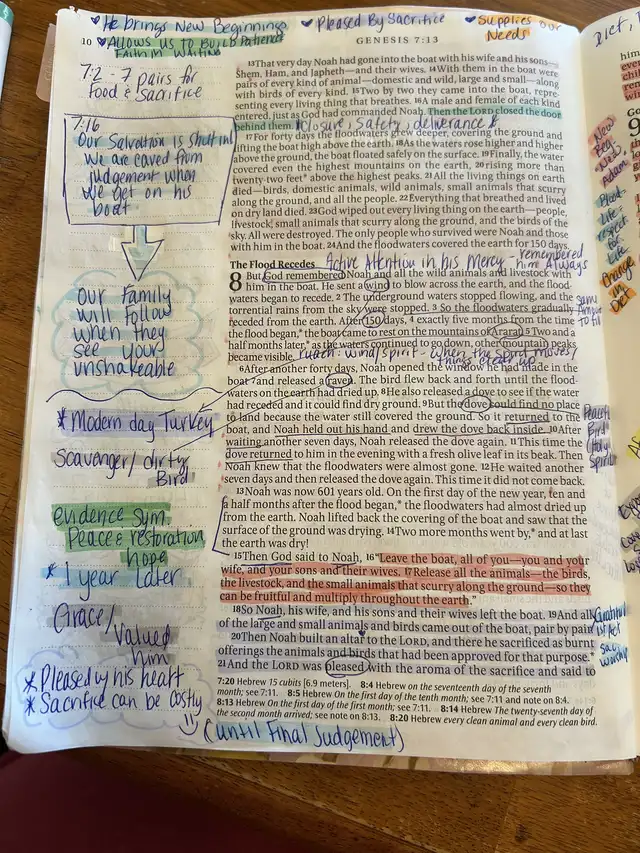 ♥ He brings New Beginnings ♥ Pleased By Sacrifice ♥ Supplies Our Needs
♥ Allows us to Build Patience
Faith in Waiting
10 GENESIS 7:13
7:2 - 7 pairs for
Food & Sacrifice
7:16
Our Salvation is shut in!
We are caved from
judgement when
we get on his
boat
Our Family
will Follow
when they
see your
unshakeable
* Modern day Turkey
Scavenger/dirty
Bird
evidence sym.
Peace & restoration
hope
* 1 year Later
Grace/
Valued
him
* Pleased by his heart
* Sacrifice can be costly
13That very day Noah had gone into the boat with his wife and his sons—
Shem, Ham, and Japheth—and their wives. 14With them in the boat were
pairs of every kind of animal—domestic and wild, large and small—along
with birds of every kind. 15Two by two they came into the boat, repre-
senting every living thing that breathes. 16A male and female of each kind
entered, just as God had commanded Noah. Then the LORD closed the door
behind them. * Closure, Safety, deliverance *
17For forty days the floodwaters grew deeper, covering the ground and
lifting the boat high above the earth. 18As the waters rose higher and higher
above the ground, the boat floated safely on the surface. 19Finally, the water
covered even the highest mountains on the earth, 20rising more than
twenty-two feet* above the highest peaks. 21All the living things on earth
died—birds, domestic animals, wild animals, small animals that scurry
along the ground, and all the people. 22Everything that breathed and lived
on dry land died. 23God wiped out every living thing on the earth—people,
livestock, small animals that scurry along the ground, and the birds of the
sky. All were destroyed. The only people who survived were Noah and those
with him in the boat. 24And the floodwaters covered the earth for 150 days.
The Flood Recedes Active Attention in his Mercy - remembered
him Always
8 But God remembered Noah and all the wild animals and livestock with
him in the boat. He sent a wind to blow across the earth, and the flood-
waters began to recede. 2The underground waters stopped flowing, and the
torrential rains from the sky were stopped. 3So the floodwaters gradually
receded from the earth. After 150 days, 4exactly five months from the time
the flood began,* the boat came to rest on the mountains of Ararat. 5Two and a
half months later,* as the waters continued to go down, other mountain peaks
became visible. ruach: wind/spirit - when the Spirit moves,
things clear up
6After another forty days, Noah opened the window he had made in the
boat 7and released a raven. The bird flew back and forth until the flood-
waters on the earth had dried up. 8He also released a dove to see if the water
had receded and it could find dry ground. 9But the dove could find no place
to land because the water still covered the ground. So it returned to the
boat, and Noah held out his hand and drew the dove back inside. 10After
waiting another seven days, Noah released the dove again. 11This time the
dove returned to him in the evening with a fresh olive leaf in its beak. Then
Noah knew that the floodwaters were almost gone. 12He waited another
seven days and then released the dove again. This time it did not come back.
13Noah was now 601 years old. On the first day of the new year, ten and
a half months after the flood began,* the floodwaters had almost dried up
from the earth. Noah lifted back the covering of the boat and saw that the
surface of the ground was drying. 14Two more months went by,* and at last
the earth was dry!
15Then God said to Noah, 16“Leave the boat, all of you—you and your
wife, and your sons and their wives. 17Release all the animals—the birds,
the livestock, and the small animals that scurry along the ground—so they
can be fruitful and multiply throughout the earth.”
18So Noah, his wife, and his sons and their wives left the boat. 19And all
of the large and small animals and birds came out of the boat, pair by pair.
20Then Noah built an altar to the LORD, and there he sacrificed as burnt
offerings the animals and birds that had been approved for that purpose.*
21And the LORD was pleased with the aroma of the sacrifice and said to
Peace
Bird
Holy
Spirit
Grateful
1st Act
Sac
Worship
7:20 Hebrew 15 cubits [6.9 meters]. 8:4 Hebrew on the seventeenth day of the seventh
month; see 7:11. 8:5 Hebrew On the first day of the tenth month; see 7:11 and note on 8:4.
8:13 Hebrew On the first day of the first month; see 7:11. 8:14 Hebrew The twenty-seventh day of
the second month arrived; see note on 8:13. 8:20 Hebrew every clean animal and every clean bird.
(until Final Judgement)
Diet,
New
Beg.
New
Adam
Blood-
Life-
respect
for
Life
Change
in
Diet